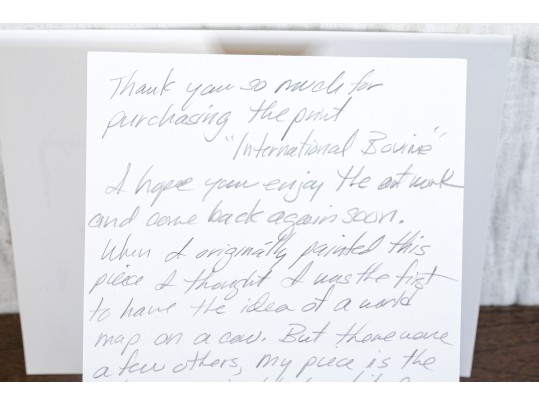 Thank you so much for
purchasing the print
"International Bovine"
I hope you enjoy the art work
and come back again soon.
When I originally painted this
piece I thought I was the first
to have the idea of a world
map on a cow. But there were
a few others, my piece is the